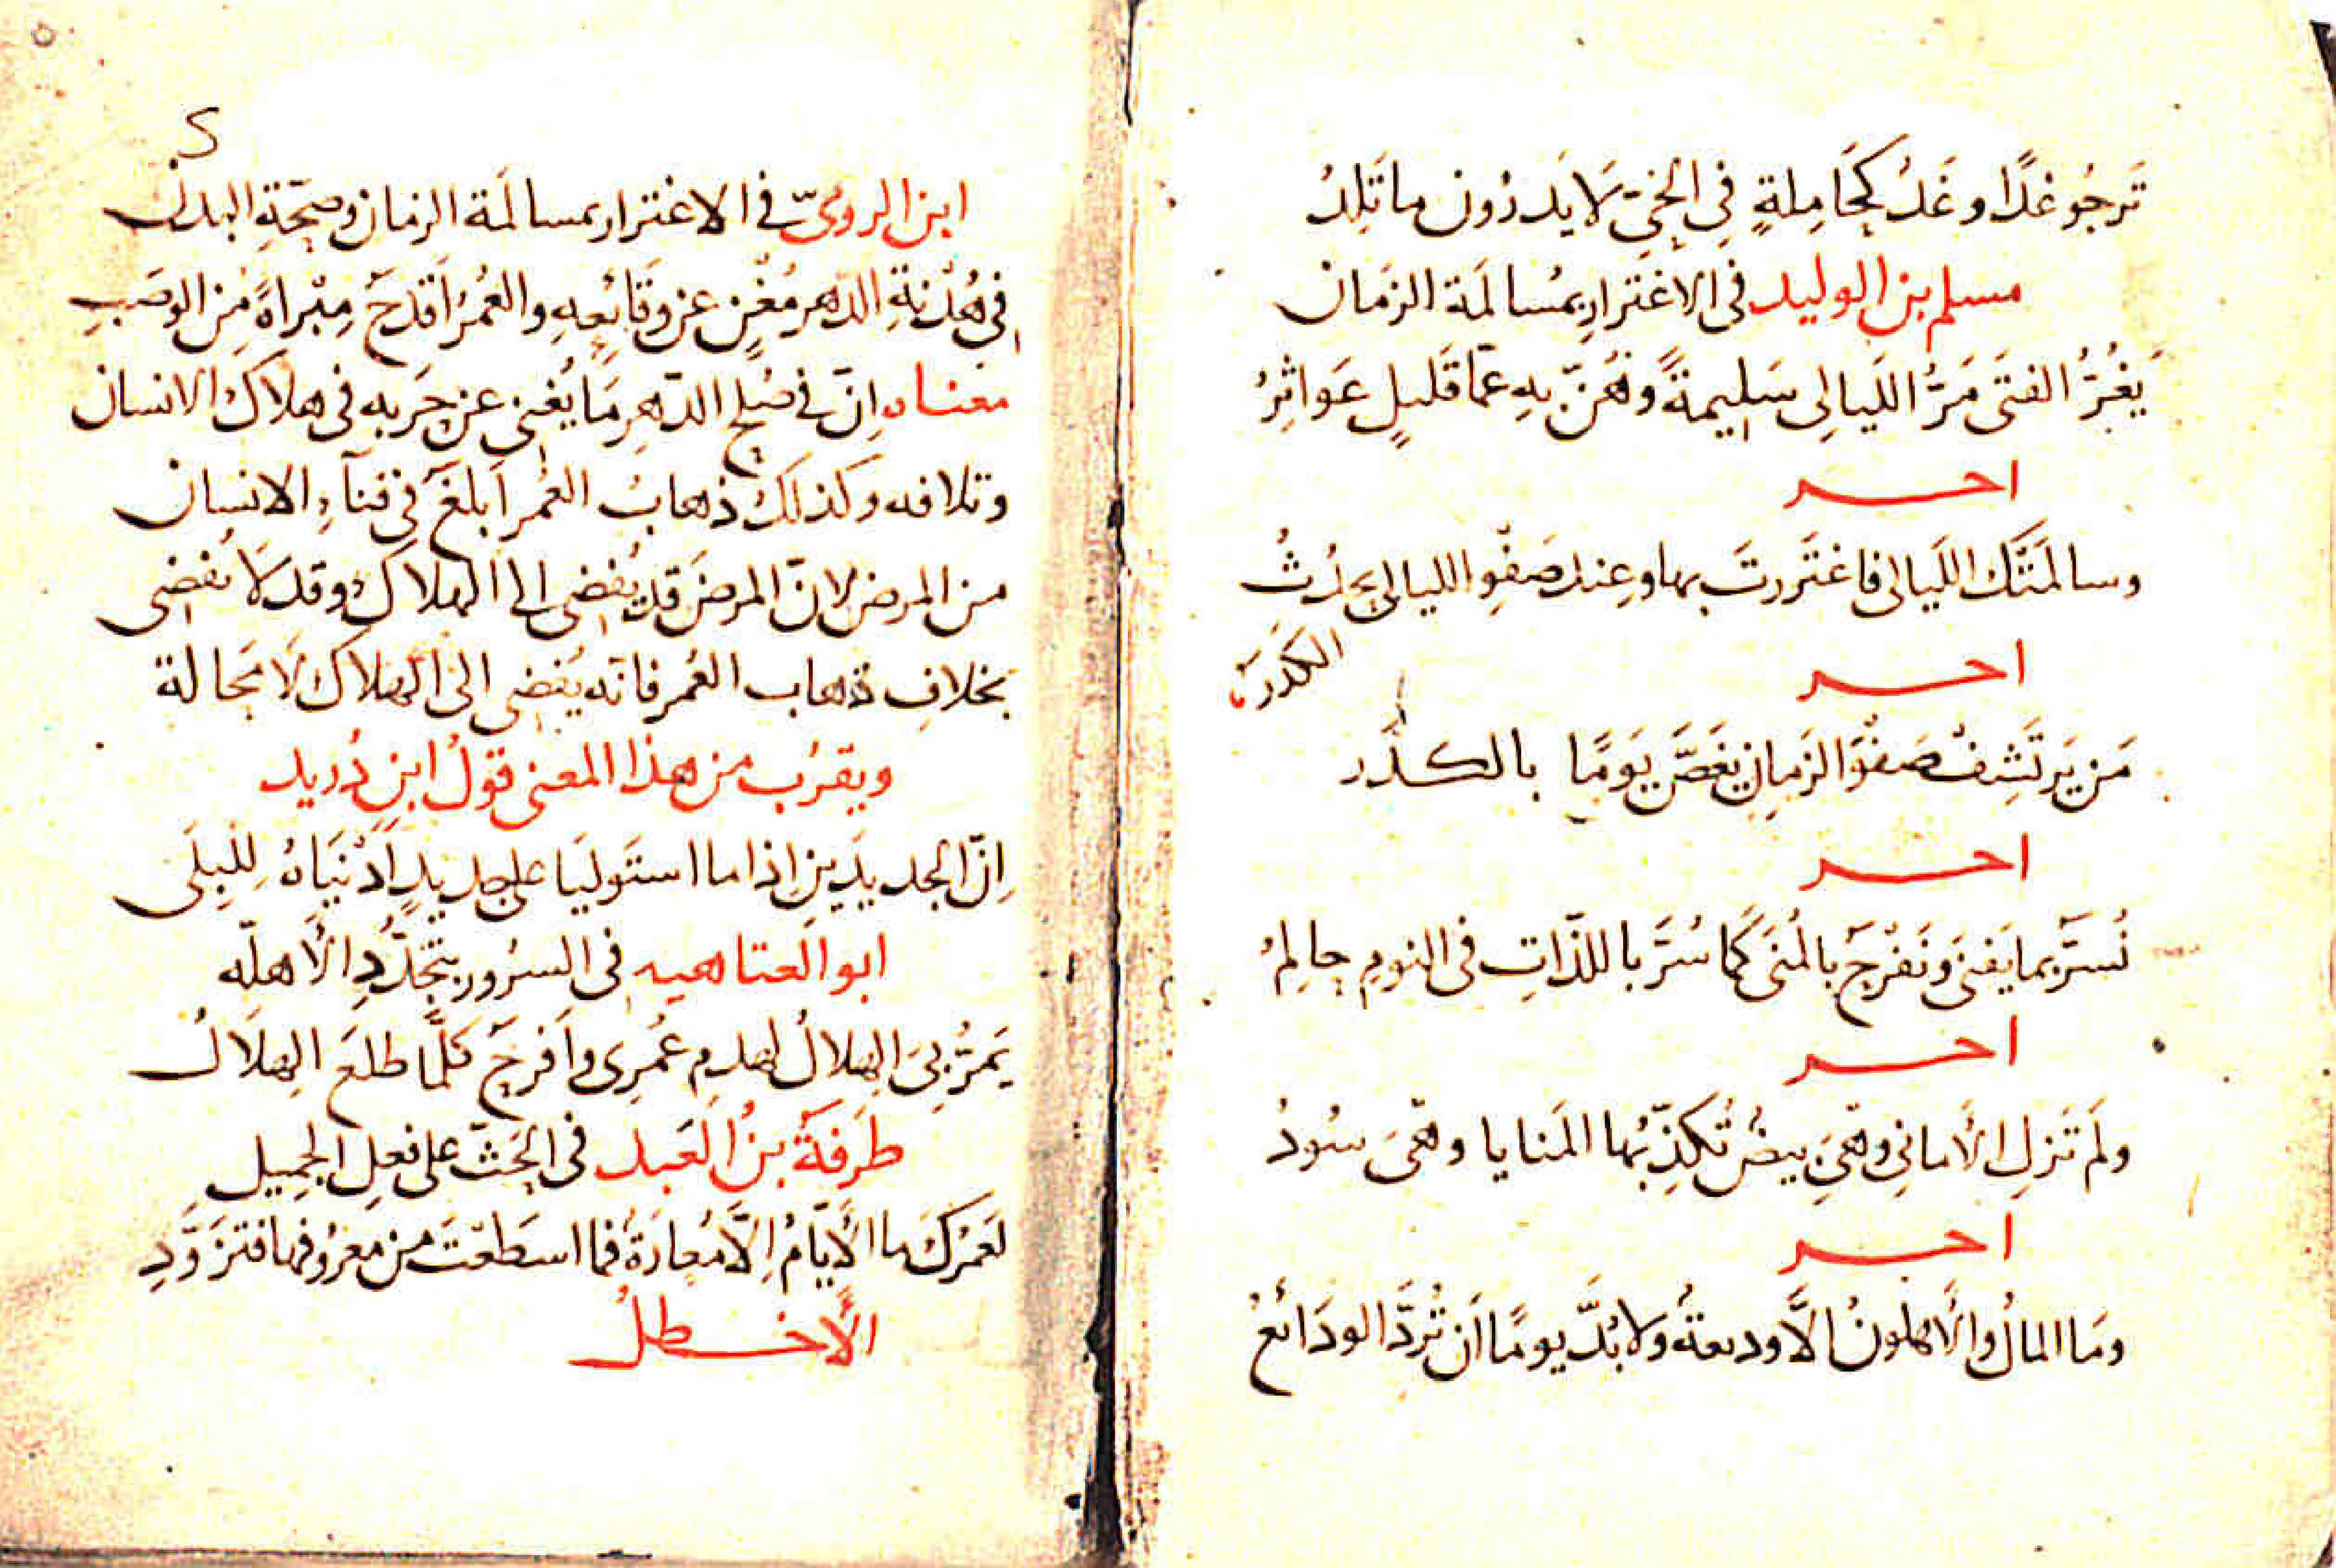 تَرجُو غدًا وغَدٌ كحَامِلةٍ فِي الحَيِّ لَا يَدرُون ما تَلِدُ
مسلم بن الوليد في الاغترارِ بمُسالَمة الزمان
يَغُرُّ الفتَى مَرُّ اللَيالِى سَلِيمةً وهُنّ بِهِ عَمّا قَليلٍ عَواثِرُ
اخـر
وسالمَتَك اللَيالى فاغتَررتَ بها وعِند صَفْوِ الليالى يحدُثُ
الكَدَرُ
اخـر
مَن يَرتَشِفْ صَفْوَ الزَمانِ يَغَصَّ يَومًا بالكدَر
اخـر
نُسَرّ بما يَفنَى ونَفْرَحُ بالمُنَى كَما سُرَّ باللذّاتِ في النومِ حالِمُ
اخـر
ولَم تَزلِ الأمانِي وهْيَ بيضٌ تُكذِّبُها المَنايا وهْىَ سُودُ
اخـر
ومَا المالُ والأهلونُ الَّا وديعةٌ ولا بُدَّ يومًا ان تُرَدَّ الودَائعُ
٢
ابن الرومىّ في الاغترار بمسالَمة الزمان وصِحّةِ البدن
فِي هُدْنةِ الدهر مُغْنٍ عن وَقَائعِهِ والعُمْرُ اَقدَحُ مِبْراةً مِن الوصَبِ
معناه اِنّ في صُلحِ الدّهرِ مَا يُغنِى عن حَربِه فى هلاك الانسان
وتلافه وكذلكَ ذهابُ العُمرِ اَبلغُ فِى فنآءِ الانسان
من المرض لانّ المرضَ قد يُفضِى الى الهلاك وقد لَا يُفضِى
بخلافِ ذهاب العُمر فانّه يُفضِى الى الهلاك لَا مَحالة
ويقرُب من هذا المعنى قولُ ابنِ دُريد
اِنّ الجديدَينِ اِذا ما استَوليَا على جديدٍ اَدْنَيَاهُ لِلبِلَى
ابو العتاهيه في السرُور بتجَدُّدِ الأهلّه
يَمرُّ بِىَ الهلالُ لهدمِ عُمرِى واَفرحُ كلَّما طلعَ الهِلَالُ
طَرفَةُ بنُ العَبد في الحَثّ على فعلِ الجميل
لعَمرُكَ ما الأيّامُ إلَّا مُعارَةٌ فما اسطَعْتَ من معرُوفها فتزوَّدِ
الأخطلُ